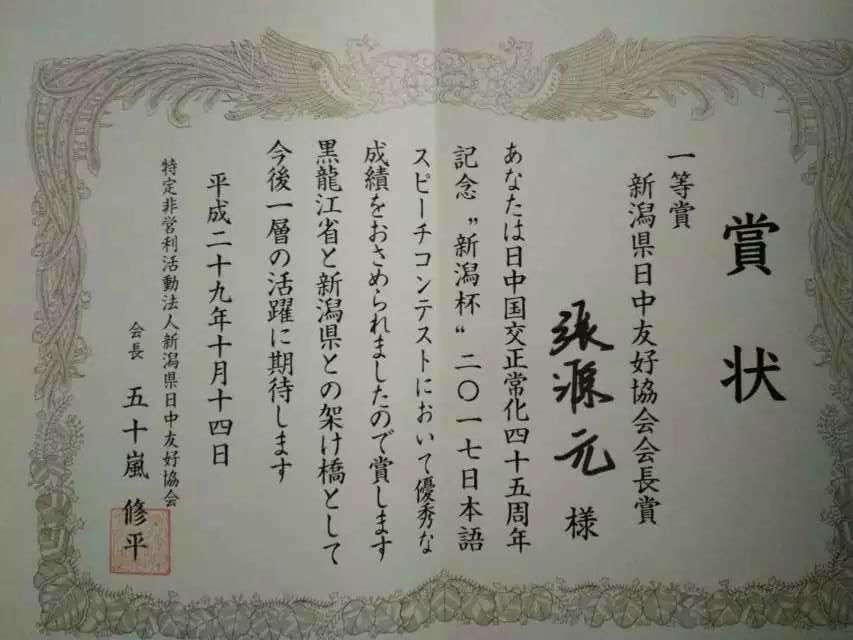 賞状
一等賞
新潟県日中友好協会会長賞
張源元 様
あなたは日中国交正常化四十五周年
記念〝新潟杯〟二〇一七日本語
スピーチコンテストにおいて優秀な
成績をおさめられましたので賞します
黒龍江省と新潟県との架け橋として
今後一層の活躍に期待します
平成二十九年十月十四日
特定非営利活動法人新潟県日中友好協会
会長 五十嵐 修平